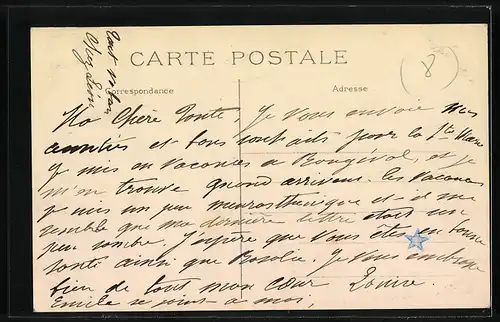 Tout va bien
chez Léon
CARTE POSTALE
Correspondance
Adresse
8
Ma Chère Tante, Je vous envoie mes
amitiés et bons souhaits pour la Ste Marie
Je suis en vacances à Bougival, et je
m'en trouve quand arrivent les vacances
Je suis un peu neurasthénique et il me
semble que ma dernière lettre était un
peu sombre. J'espère que vous êtes en bonne
santé ainsi que Rosalie. Je vous embrasse
bien de tout mon cœur Louise.
Emile se joint à moi,